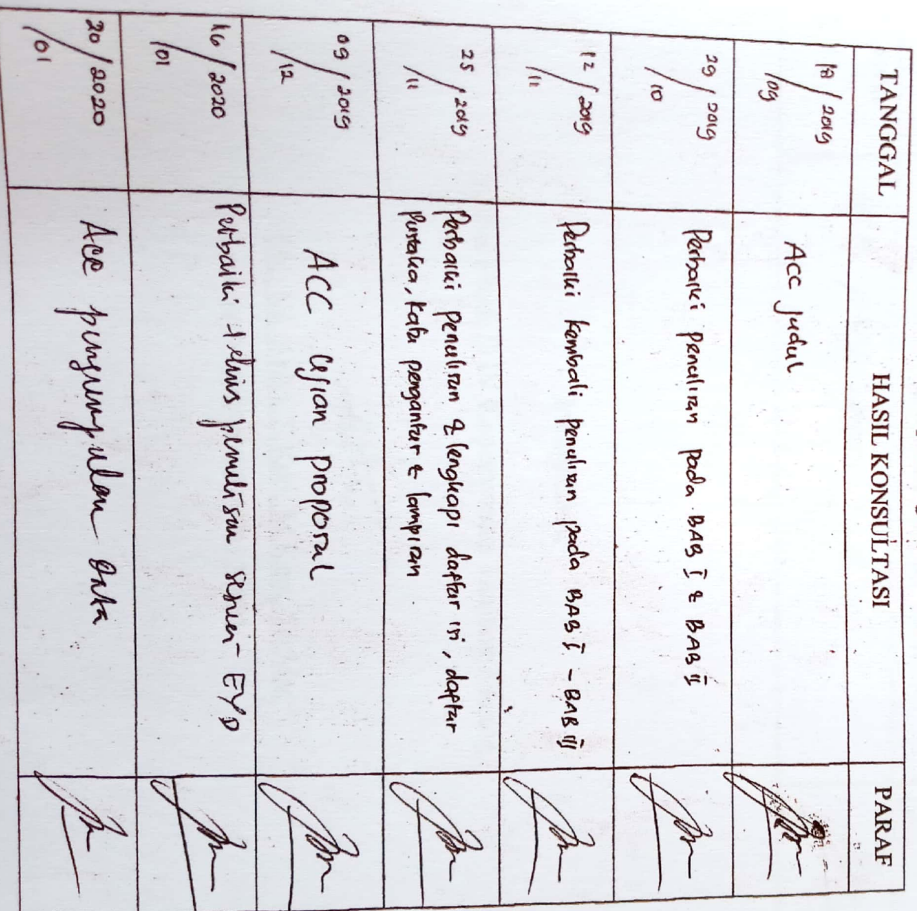 TANGGAL HASIL KONSULTASI PARAF
18/09 2019 ACC judul
29/10 2019 Perbaiki penulisan pada BAB I & BAB II
12/11 2019 Perbaiki kembali penulisan pada BAB I - BAB III
25/11 2019 Perbaiki penulisan & lengkapi daftar isi, daftar
pustaka, kata pengantar & lampiran
09/12 2019 ACC Ujian proposal
16/01 2020 Perbaiki teknis penulisan sesuai EYD
20/01 2020 Acc pengumpulan Data